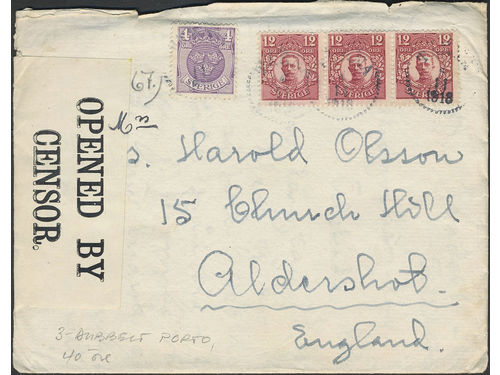 4
SVERIGE
12 12
ÖRE ÖRE
SVERIGE
12 12
ÖRE ÖRE
SVERIGE
12 12
ÖRE ÖRE
SVERIGE
1918
1918
OPENED BY
CENSOR.
s. Harold Olsson
15 Church Hill
Aldershot.
England.
3-DUBBELT PORTO,
40 öre